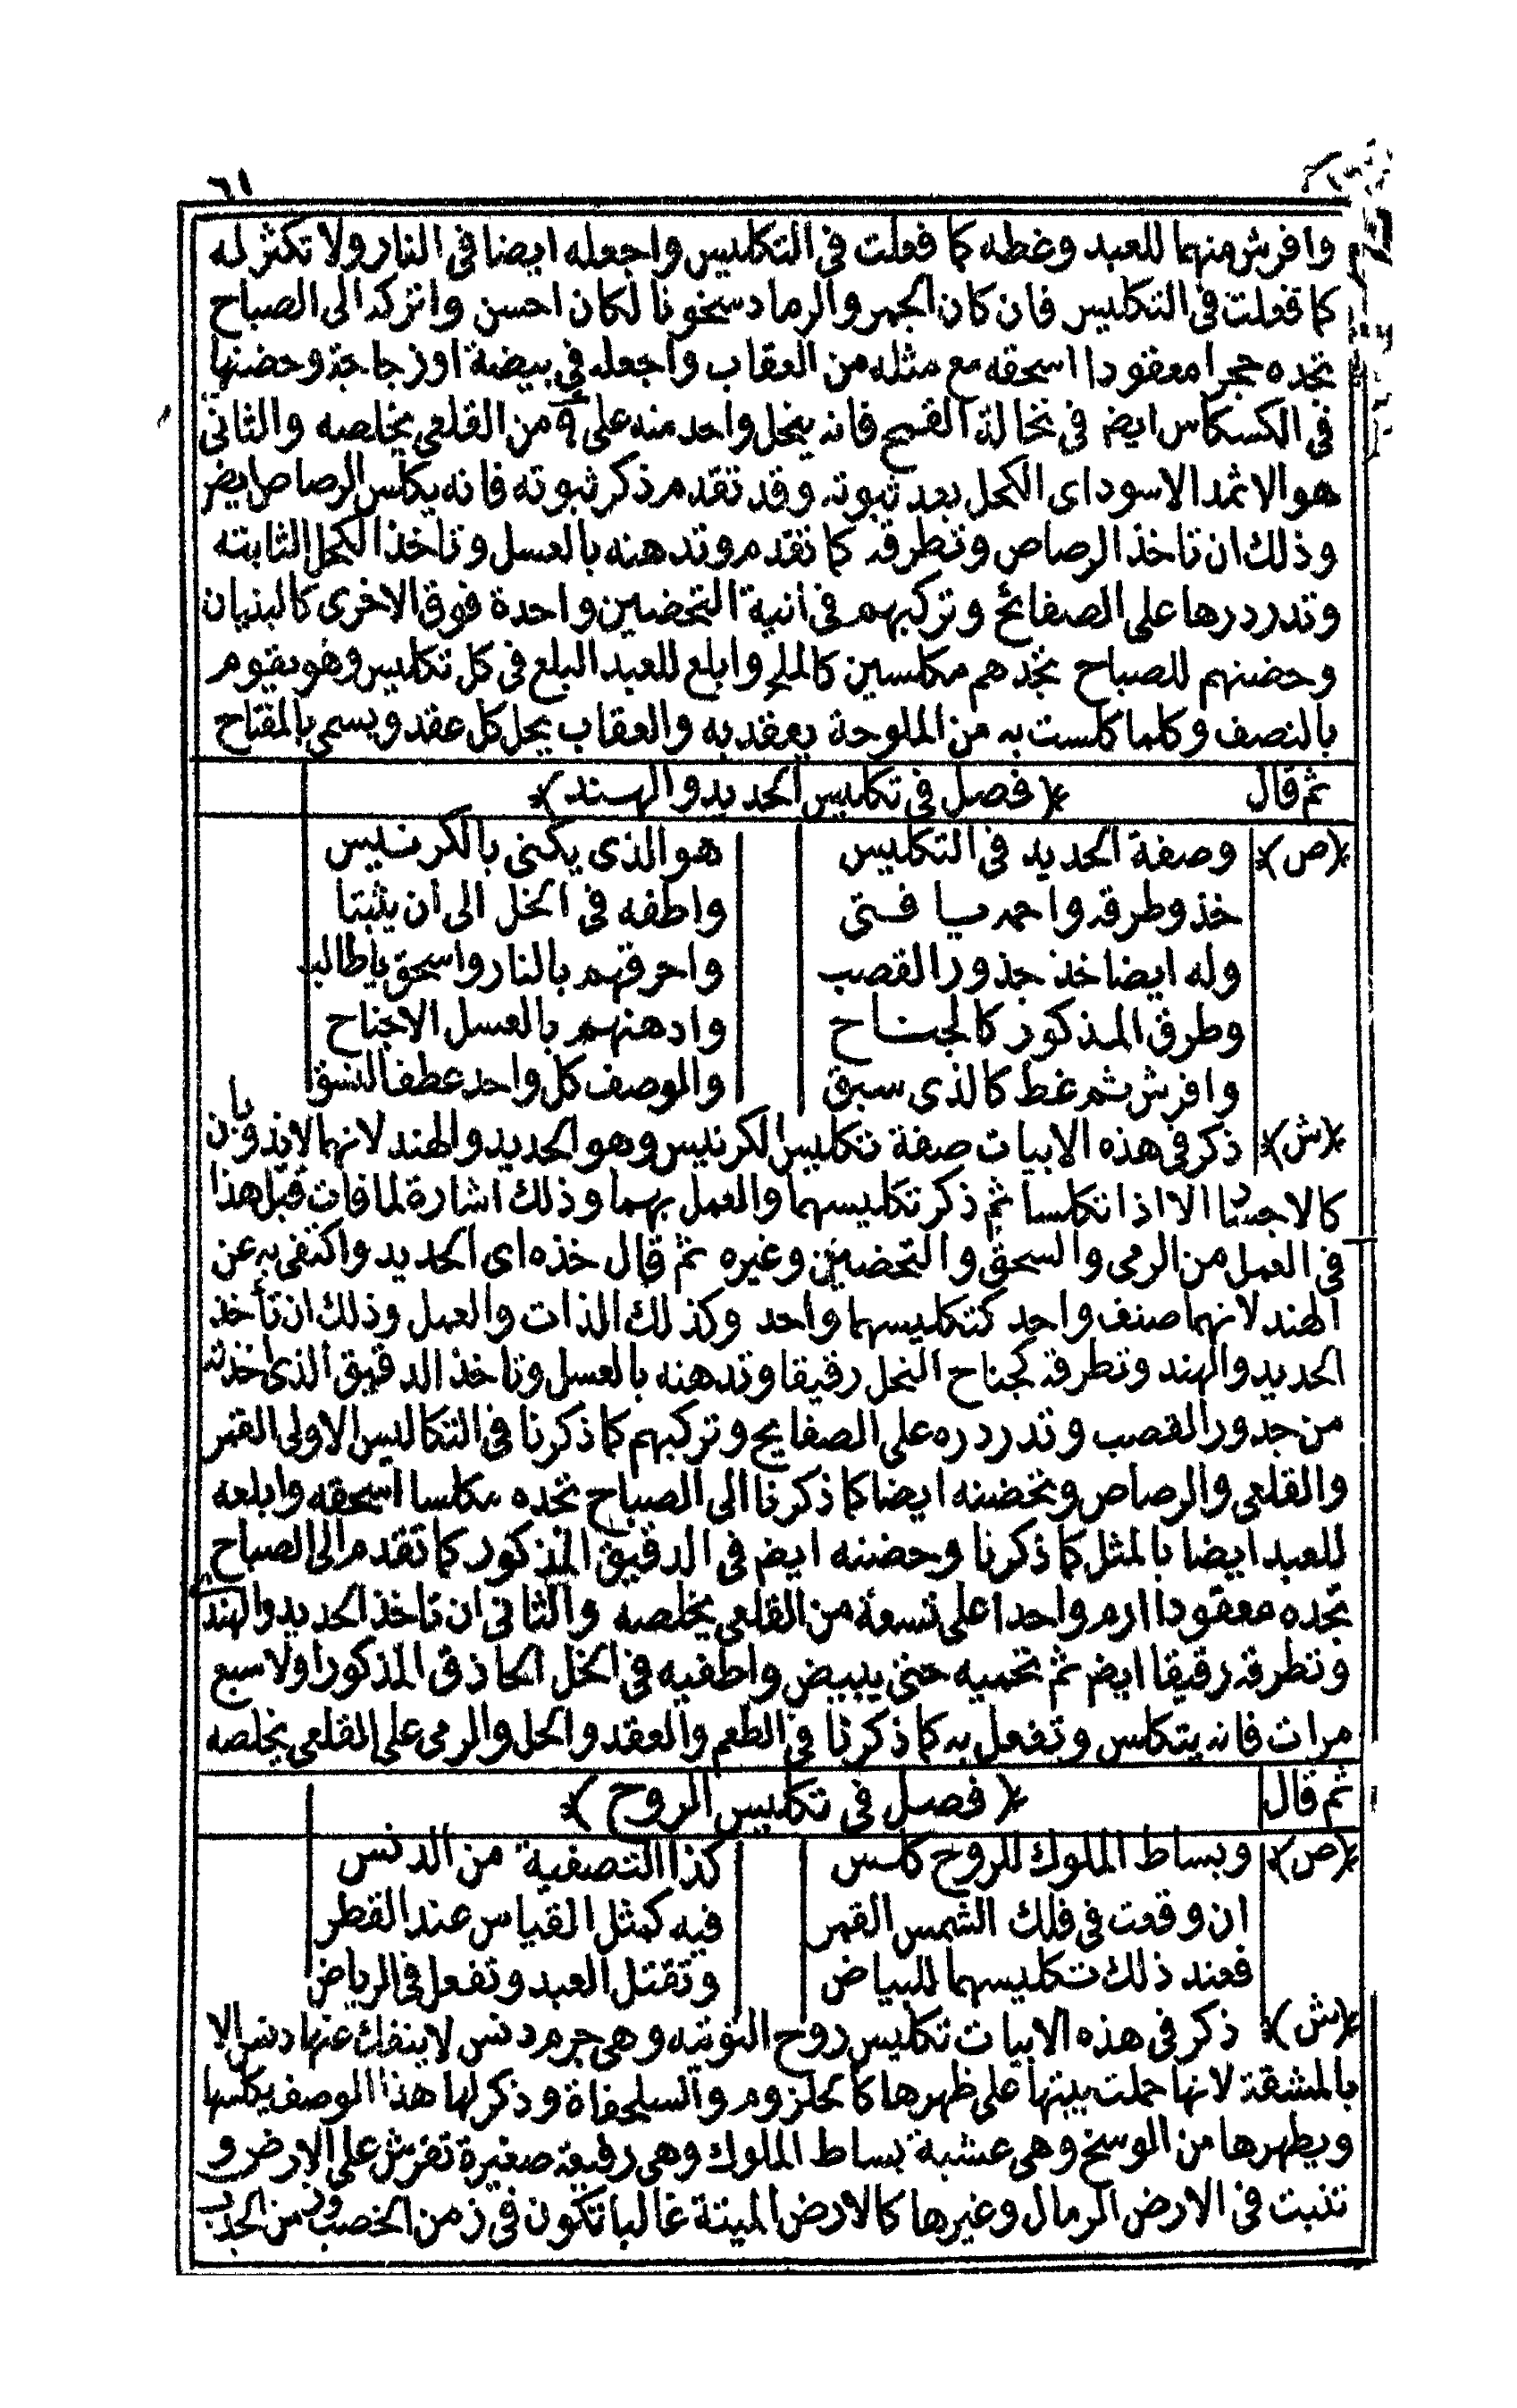 ٦١
وافرش منهما للعبد وغطه كما فعلت فى التكليس واجعله ايضا فى النار ولا تكثر له
كما فعلت فى التكليس فان كان الجمر والرماد سخونا لكان احسن واتركه الى الصباح
تجده حجرا معقودا اسحقه مع مثله من العقاب واجعله فى بيضة اوزجاجة وحضنها
فى الكسكاس ايض فى نخالة القمح فانه ينحل واحد منه على ٩ من القلعى يخلصه والثانى
هو الاثمد الاسود اى الكحل بعد ثبوته وقد تقدم ذكر ثبوته فانه يكلس الرصاص ايض
وذلك ان تاخذ الرصاص وتطرقه كما تقدم وتدهنه بالعسل وتاخذ الكحل الثابته
وتدردرها على الصفائح وتركبهم فى انية التحضين واحدة فوق الاخرى كالبنيان
وحضنهم للصباح تجدهم مكلسين كالملح وابلع للعبد البلع فى كل تكليس وهو يقوم
بالنصف وكلما كلست به من الملوحة يعقد به والعقاب يحل كل عقد ويسمى بالمفتاح
ثم قال ﴿فصل فى تكليس الحديد والهند﴾
﴿ص﴾ وصفة الحديد فى التكليس هو الذى يكنى بالكرنيس
خذ وطرقه واحمه يا فتى واطفه فى الخل الى ان يثبتا
وله ايضا خذ جذور القصب واحرقهم بالنار واسحق ياطالب
وطرق المذكور كالجناح وادهنهم بالعسل الاجناح
وافرش ثم غط كالذى سبق والوصف كل واحد عطف النسق
﴿ش﴾ ذكر فى هذه الابيات صفة تكليس الكرنيس وهو الحديد والهند لانهما لا يذوبان
كالاجساد الا اذا تكلسا ثم ذكر تكليسهما والعمل بهما وذلك اشارة لما فات قبل هذا
فى العمل من الرمى والسحق والتحضين وغيره ثم قال خذه اى الحديد واكتفى به عن
الهند لانهما صنف واحد كتكليسهما واحد وكذلك الذات والعمل وذلك ان تأخذ
الحديد والهند وتطرقه كجناح النحل رقيقا وتدهنه بالعسل وتاخذ الدقيق الذى اخذته
من جدور القصب وتدردره على الصفايح وتركبهم كما ذكرنا فى التكاليس الاولى القمر
والقلعى والرصاص وتحضنه ايضا كما ذكرنا الى الصباح تجده مكلسا اسحقه وابلعه
للعبد ايضا بالمثل كما ذكرنا وحضنه ايض فى الدقيق المذكور كما تقدم الى الصباح
تجده معقودا ارم واحدا على تسعة من القلعى يخلصه والثانى ان تاخذ الحديد والهند
وتطرقه رقيقا ايض ثم تحميه حتى يبيض واطفيه فى الخل الحاذق المذكور اولا سبع
مرات فانه يتكلس وتفعل به كما ذكرنا فى الطعم والعقد والحل والرمى على القلعى يخلصه
ثم قال ﴿فصل فى تكليس الروح﴾
﴿ص﴾ وبساط الملوك للروح كلس كذا التصفية من الدنس
ان وقعت فى فلك الشمس القمر فيه كمثل القياس عند القطر
فعند ذلك تكليسهما للبياض وتقتل العبد وتفعل فى الرياض
﴿ش﴾ ذكر فى هذه الابيات تكليس روح التوتيه وهى جرم دنس لا ينفك عنها دنس الا
بالمشقة لانها حملت بيتها على ظهرها كالحلزوم والسلحفاة وذكر لها هذا الوصف يكلسها
ويطهرها من الوسخ وهى عشبة بساط الملوك وهى رقيقه صغيرة تفرش على الارض و
تنبت فى الارض الرمال وغيرها كالارض الميتة غالبا تكون فى زمن الخصب ودون من الجدب